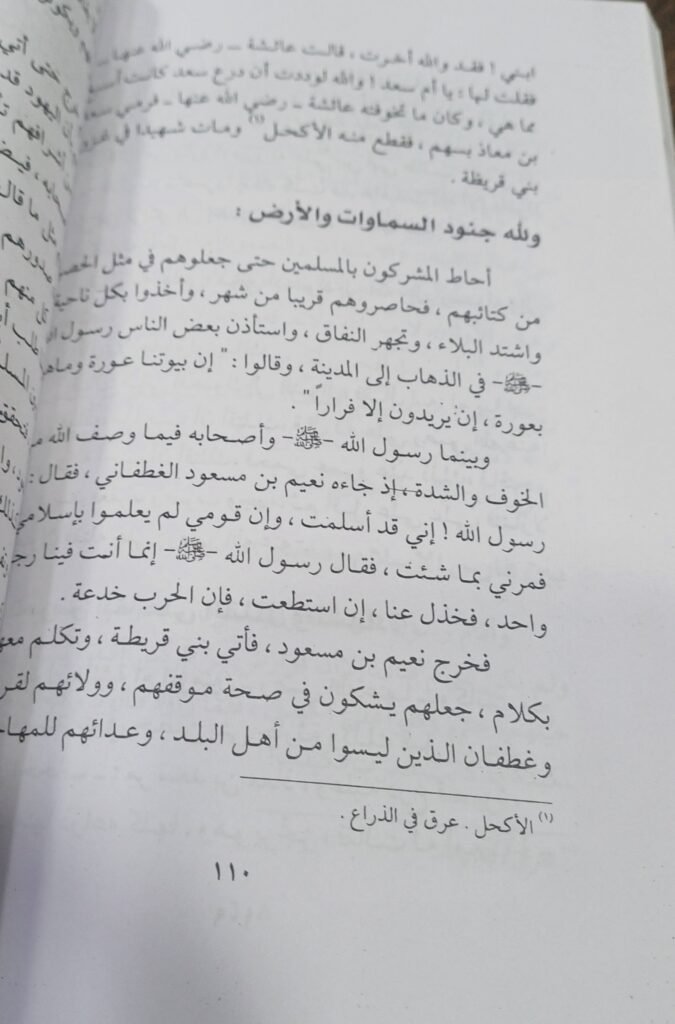 ابني ! فقد والله أخرت ، قالت عائشة – رضي الله عنها –
فقلت لها : يا أم سعد ! والله لوددت أن درع سعد كانت
مما هي ، وكان ما تخوفته عائشة – رضي الله عنها – فرمي سعد
بن معاذ بسهم ، فقطع منه الأكحل(١) ومات شهيدا في
بني قريظة .
ولله جنود السماوات والأرض :
أحاط المشركون بالمسلمين حتى جعلوهم في مثل
من كتائبهم ، فحاصروهم قريبا من شهر ، وأخذوا بكل ناحية
واشتد البلاء ، وتجهر النفاق ، واستأذن بعض الناس رسول
–ﷺ– في الذهاب إلى المدينة ، وقالوا : " إن بيوتنا عورة
بعورة ، إن يريدون إلا فراراً " .
وبينما رسول الله –ﷺ– وأصحابه فيما وصف الله
الخوف والشدة ، إذ جاءه نعيم بن مسعود الغطفاني ، فقال :
رسول الله ! إني قد أسلمت ، وإن قومي لم يعلموا بإسلامي
فمرني بما شئت ، فقال رسول الله –ﷺ– إنما أنت فينا
واحد ، فخذل عنا ، إن استطعت ، فإن الحرب خدعة .
فخرج نعيم بن مسعود ، فأتي بني قريطة ، وتكلم
بكلام ، جعلهم يشكون في صحة موقفهم ، وولائهم
وغطفان الذين ليسوا من أهل البلد ، وعدائهم
(١) الأكحل . عرق في الذراع .
١١٠